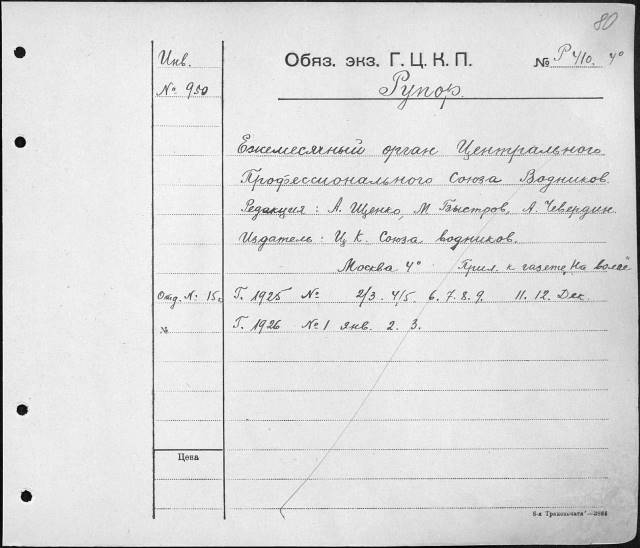 80
Инв.
№ 950
Обяз. экз. Г. Ц. К. П.
№ Р 410. 4°
Рупор.
Ежемесячный орган Центрального
Профессионального Союза Водников.
Редакция: А. Щенко, М. Быстров, А. Чевердин.
Издатель: Ц. К. Союза водников.
Москва 4° Прил. к газете „На вахте"
Отд. № 15
Г. 1925 № 2/3. 4/5. 6. 7. 8. 9. 11. 12. Дек.
№
Г. 1926 № 1 янв. 2. 3.
Цена